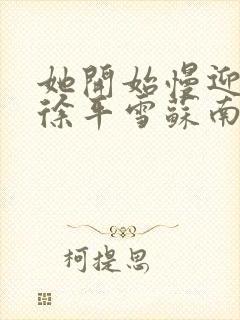 她開始慢迎
徐年雪蘇南
柯提思